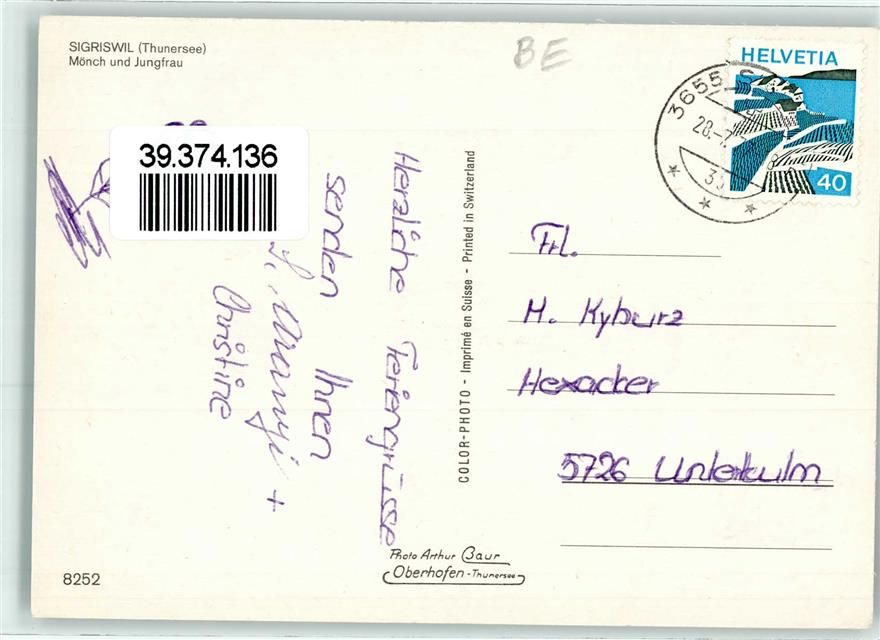 SIGRISWIL (Thunersee)
Mönch und Jungfrau
BE
HELVETIA
40
3655 S
28.-7.
39.374.136
Herzliche Feriengrüsse
senden Ihnen
Mamyi +
Christine
COLOR-PHOTO - Imprimé en Suisse - Printed in Switzerland
Frl.
M. Kyburz
Hexacker
5726 Unterkulm
Photo Arthur Baur
Oberhofen - Thunersee
8252